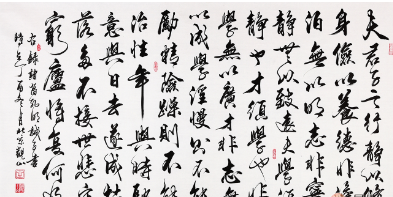 夫君子之行静以修
身儉以養德非澹
泊無以明志非寧
静無以致遠夫學須
静也才須學也非
學無以廣才非志無
以成學淫慢則不能
勵精險躁則不能
治性年與時馳
意與日去遂成枯
落多不接世悲守
窮廬將復何及
右錄諸葛孔明誡子書
丁酉冬月於京